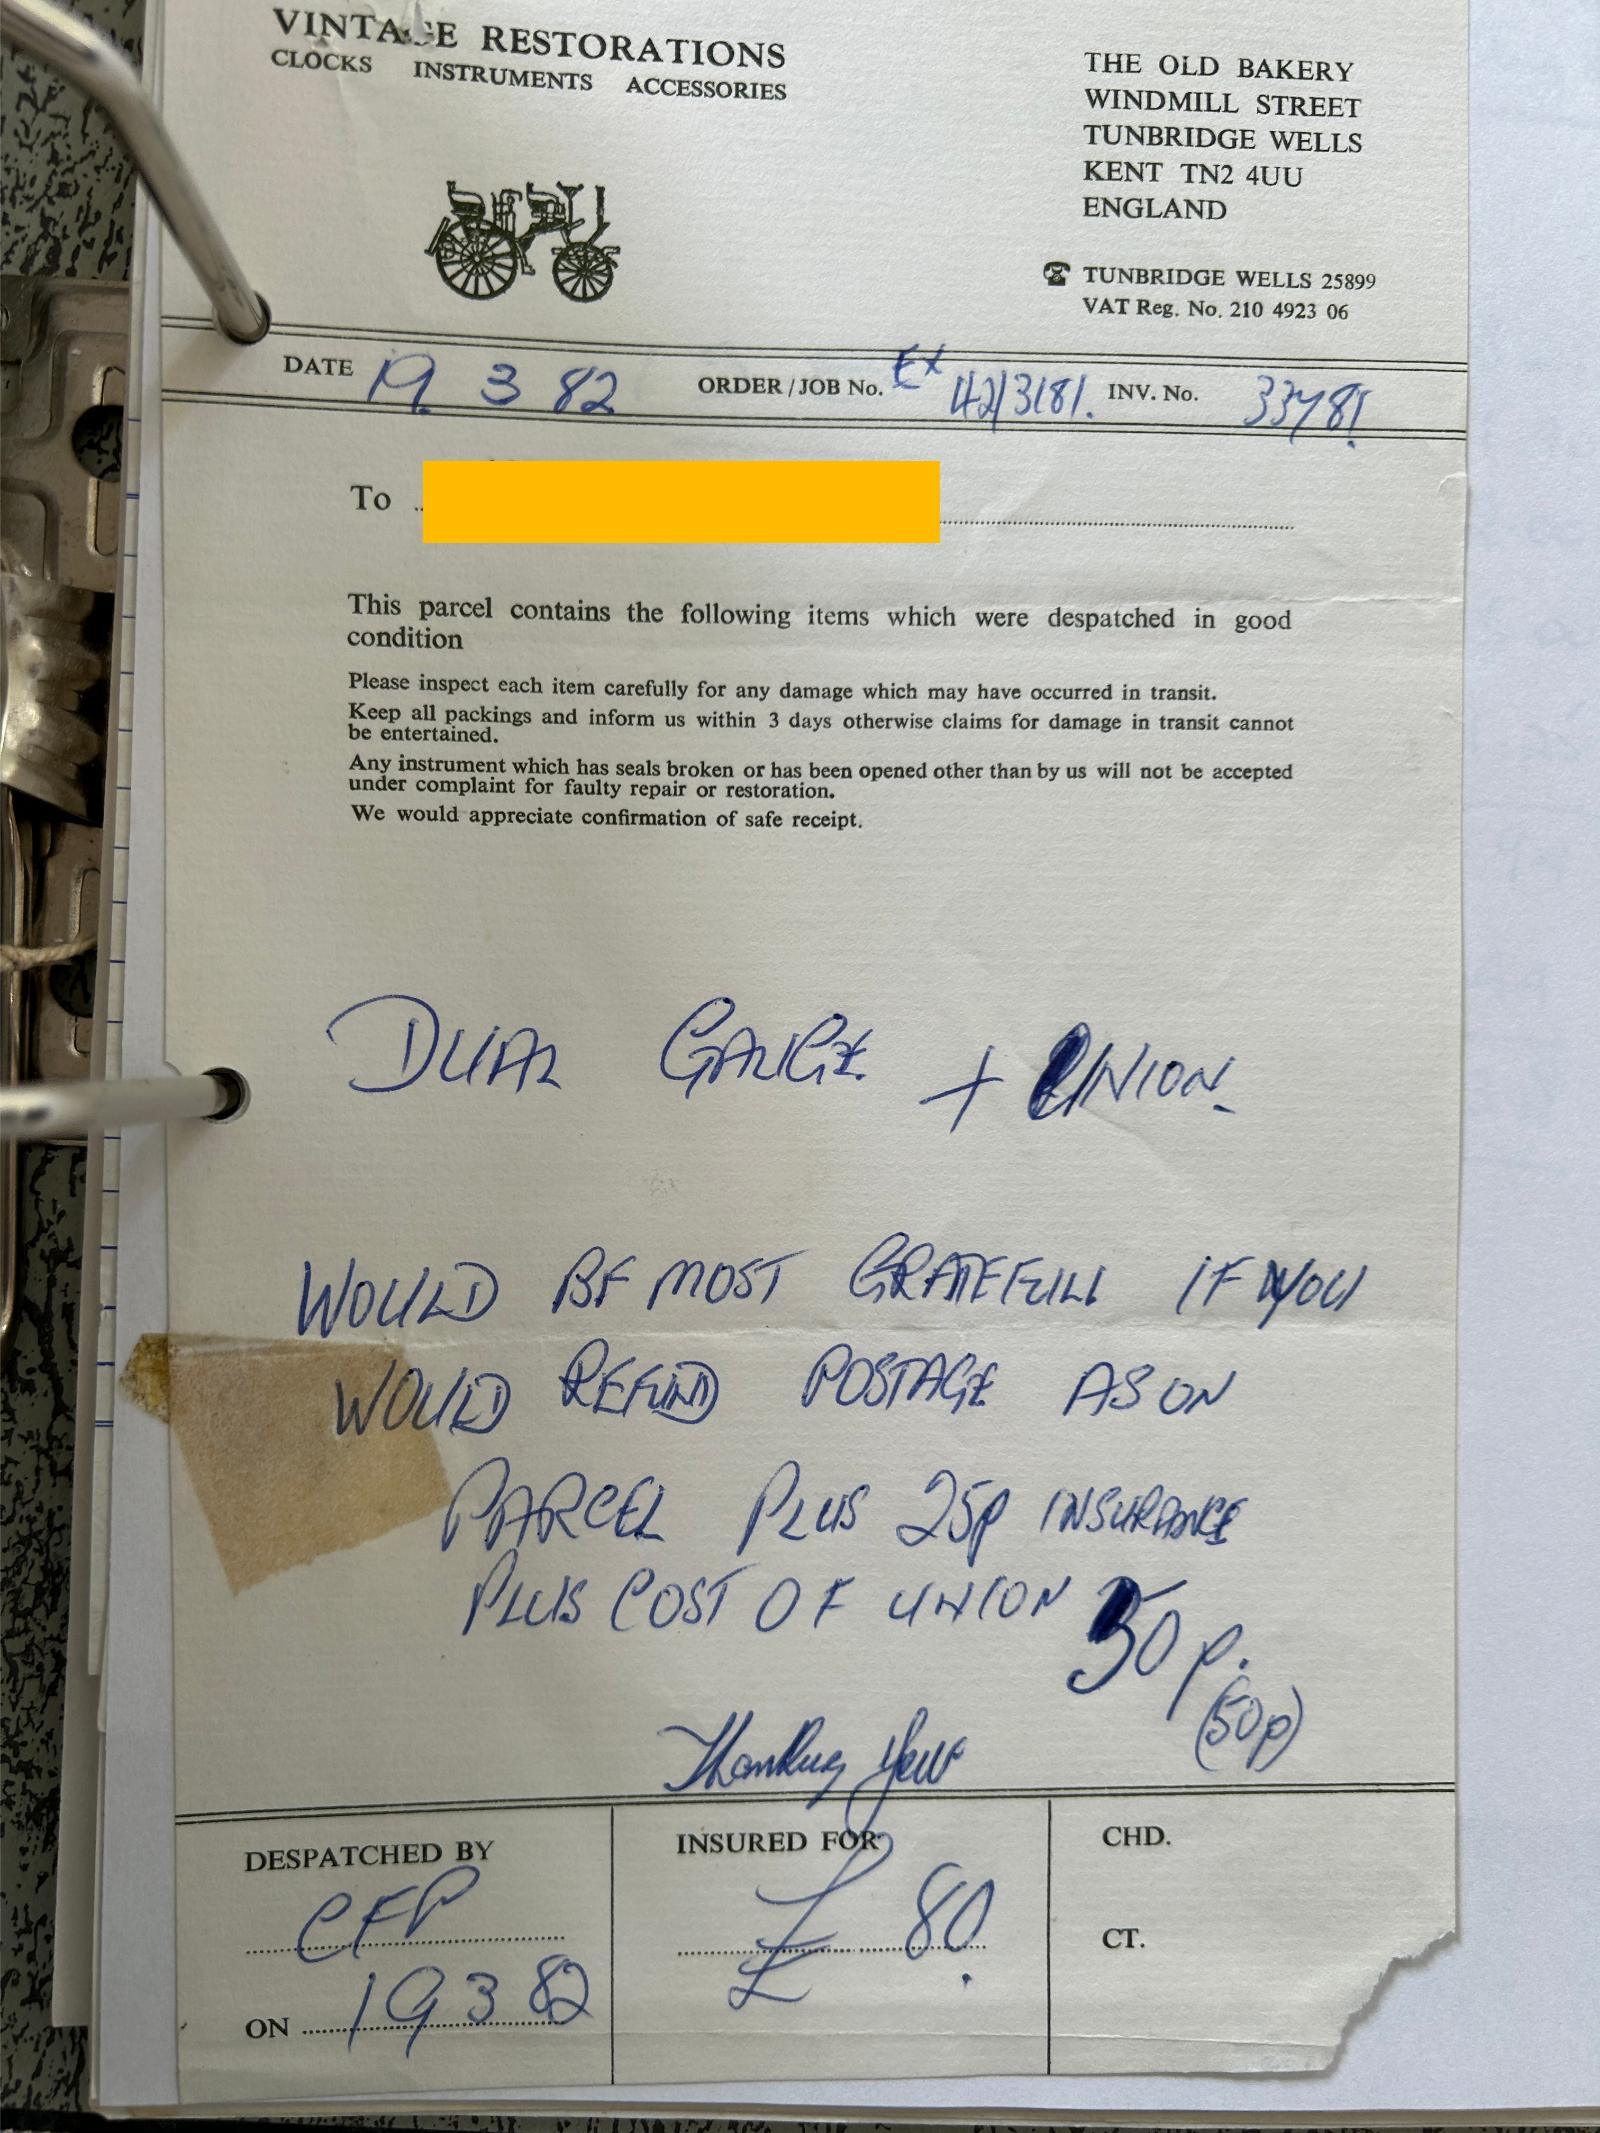 VINTAGE RESTORATIONS
CLOCKS INSTRUMENTS ACCESSORIES
THE OLD BAKERY
WINDMILL STREET
TUNBRIDGE WELLS
KENT TN2 4UU
ENGLAND
TUNBRIDGE WELLS 25899
VAT Reg. No. 210 4923 06
DATE 19. 3 82 ORDER/JOB No. EX 142/3181. INV. No.
To
This parcel contains the following items which were despatched in good
condition
Please inspect each item carefully for any damage which may have occurred in transit.
Keep all packings and inform us within 3 days otherwise claims for damage in transit cannot
be entertained.
Any instrument which has seals broken or has been opened other than by us will not be accepted
under complaint for faulty repair or restoration.
We would appreciate confirmation of safe receipt.
DUAL GAUGE + UNION.
WOULD BE MOST GRATEFULL IF YOU
WOULD REFUND POSTAGE AS ON
PARCEL PLUS 25p INSURANCE
PLUS COST OF UNION 50p.
(50p)
Thanking You
DESPATCHED BY
CFP
ON 19 3 82
INSURED FOR
£ 80.
CHD.
CT.